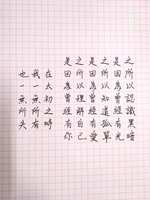 之所以認識黑暗
是因為曾經有光
之所以知道孤單
是因為曾經有愛
之所以理解自己
是因為曾經有你
在太初之時
我一無所有
也一無所失